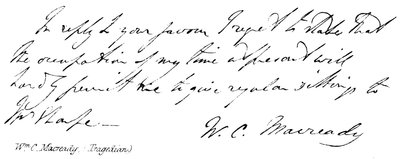 In reply to your favour I regret to state that
the occupation of my time at present will
hardly permit me to give regular sittings to
Mr Sharpe—
W. C. Macready
Wm. C. Macready, (Tragedian)